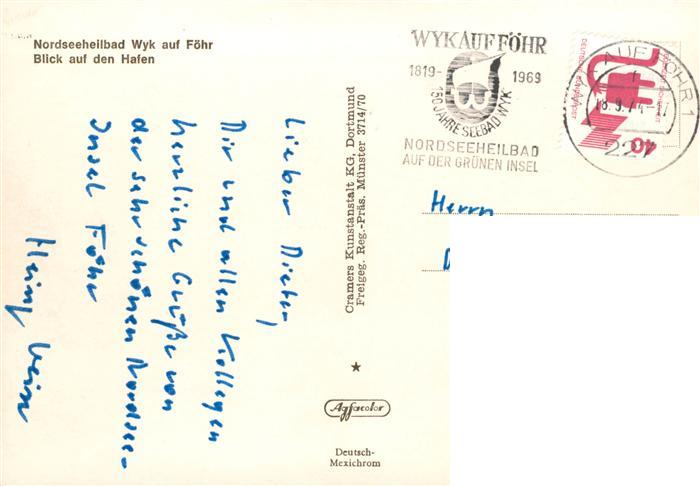 Nordseeheilbad Wyk auf Föhr
Blick auf den Hafen
Lieber Dieter,
Dir und allen Kollegen
herzliche Grüße von
der sehr schönen Nordsee-
Insel Föhr
Heinz
Cramers Kunstanstalt KG, Dortmund
Freigeg. Reg.-Präs. Münster 3714/70
Agfacolor
Deutsch-
Mexichrom
WYK AUF FÖHR
1819- 1969
150 JAHRE SEEBAD WYK
NORDSEEHEILBAD
AUF DER GRÜNEN INSEL
AUF FÖHR 1
18.9.74
227
40
Herrn